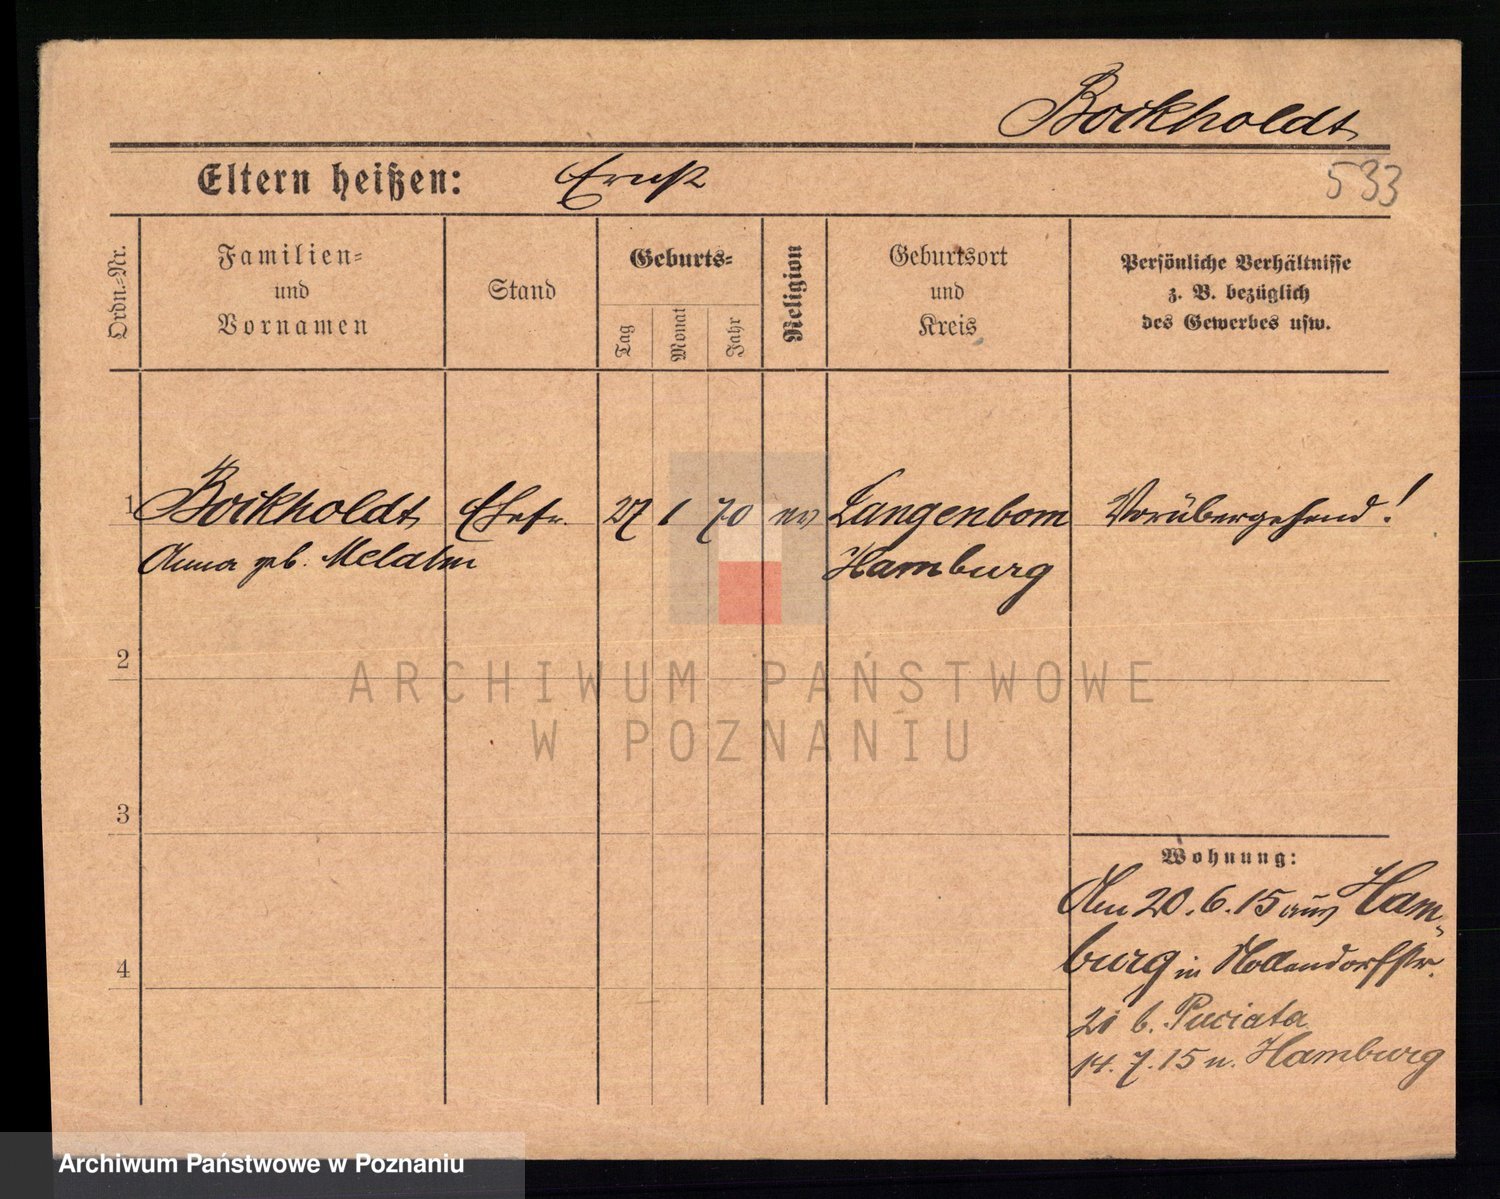 Bockholdt
533
Eltern heißen: Ernst
Ordn.-Nr.
Familien-
und
Vornamen
Stand
Geburts-
Tag
Monat
Jahr
Religion
Geburtsort
und
Kreis
Persönliche Verhältnisse
z. B. bezüglich
des Gewerbes usw.
1 Bockholdt Ehefr. 27 1 70 ev Langenbom Vorübergehend!
Anna geb. Hamburg
2
3
4
Wohnung:
Am 20. 6. 15 aus Ham-
burg in Nollendorfstr.
20 b. Puciata
14. 7. 15 n. Hamburg
ARCHIWUM PAŃSTWOWE
W POZNANIU
Archiwum Państwowe w Poznaniu